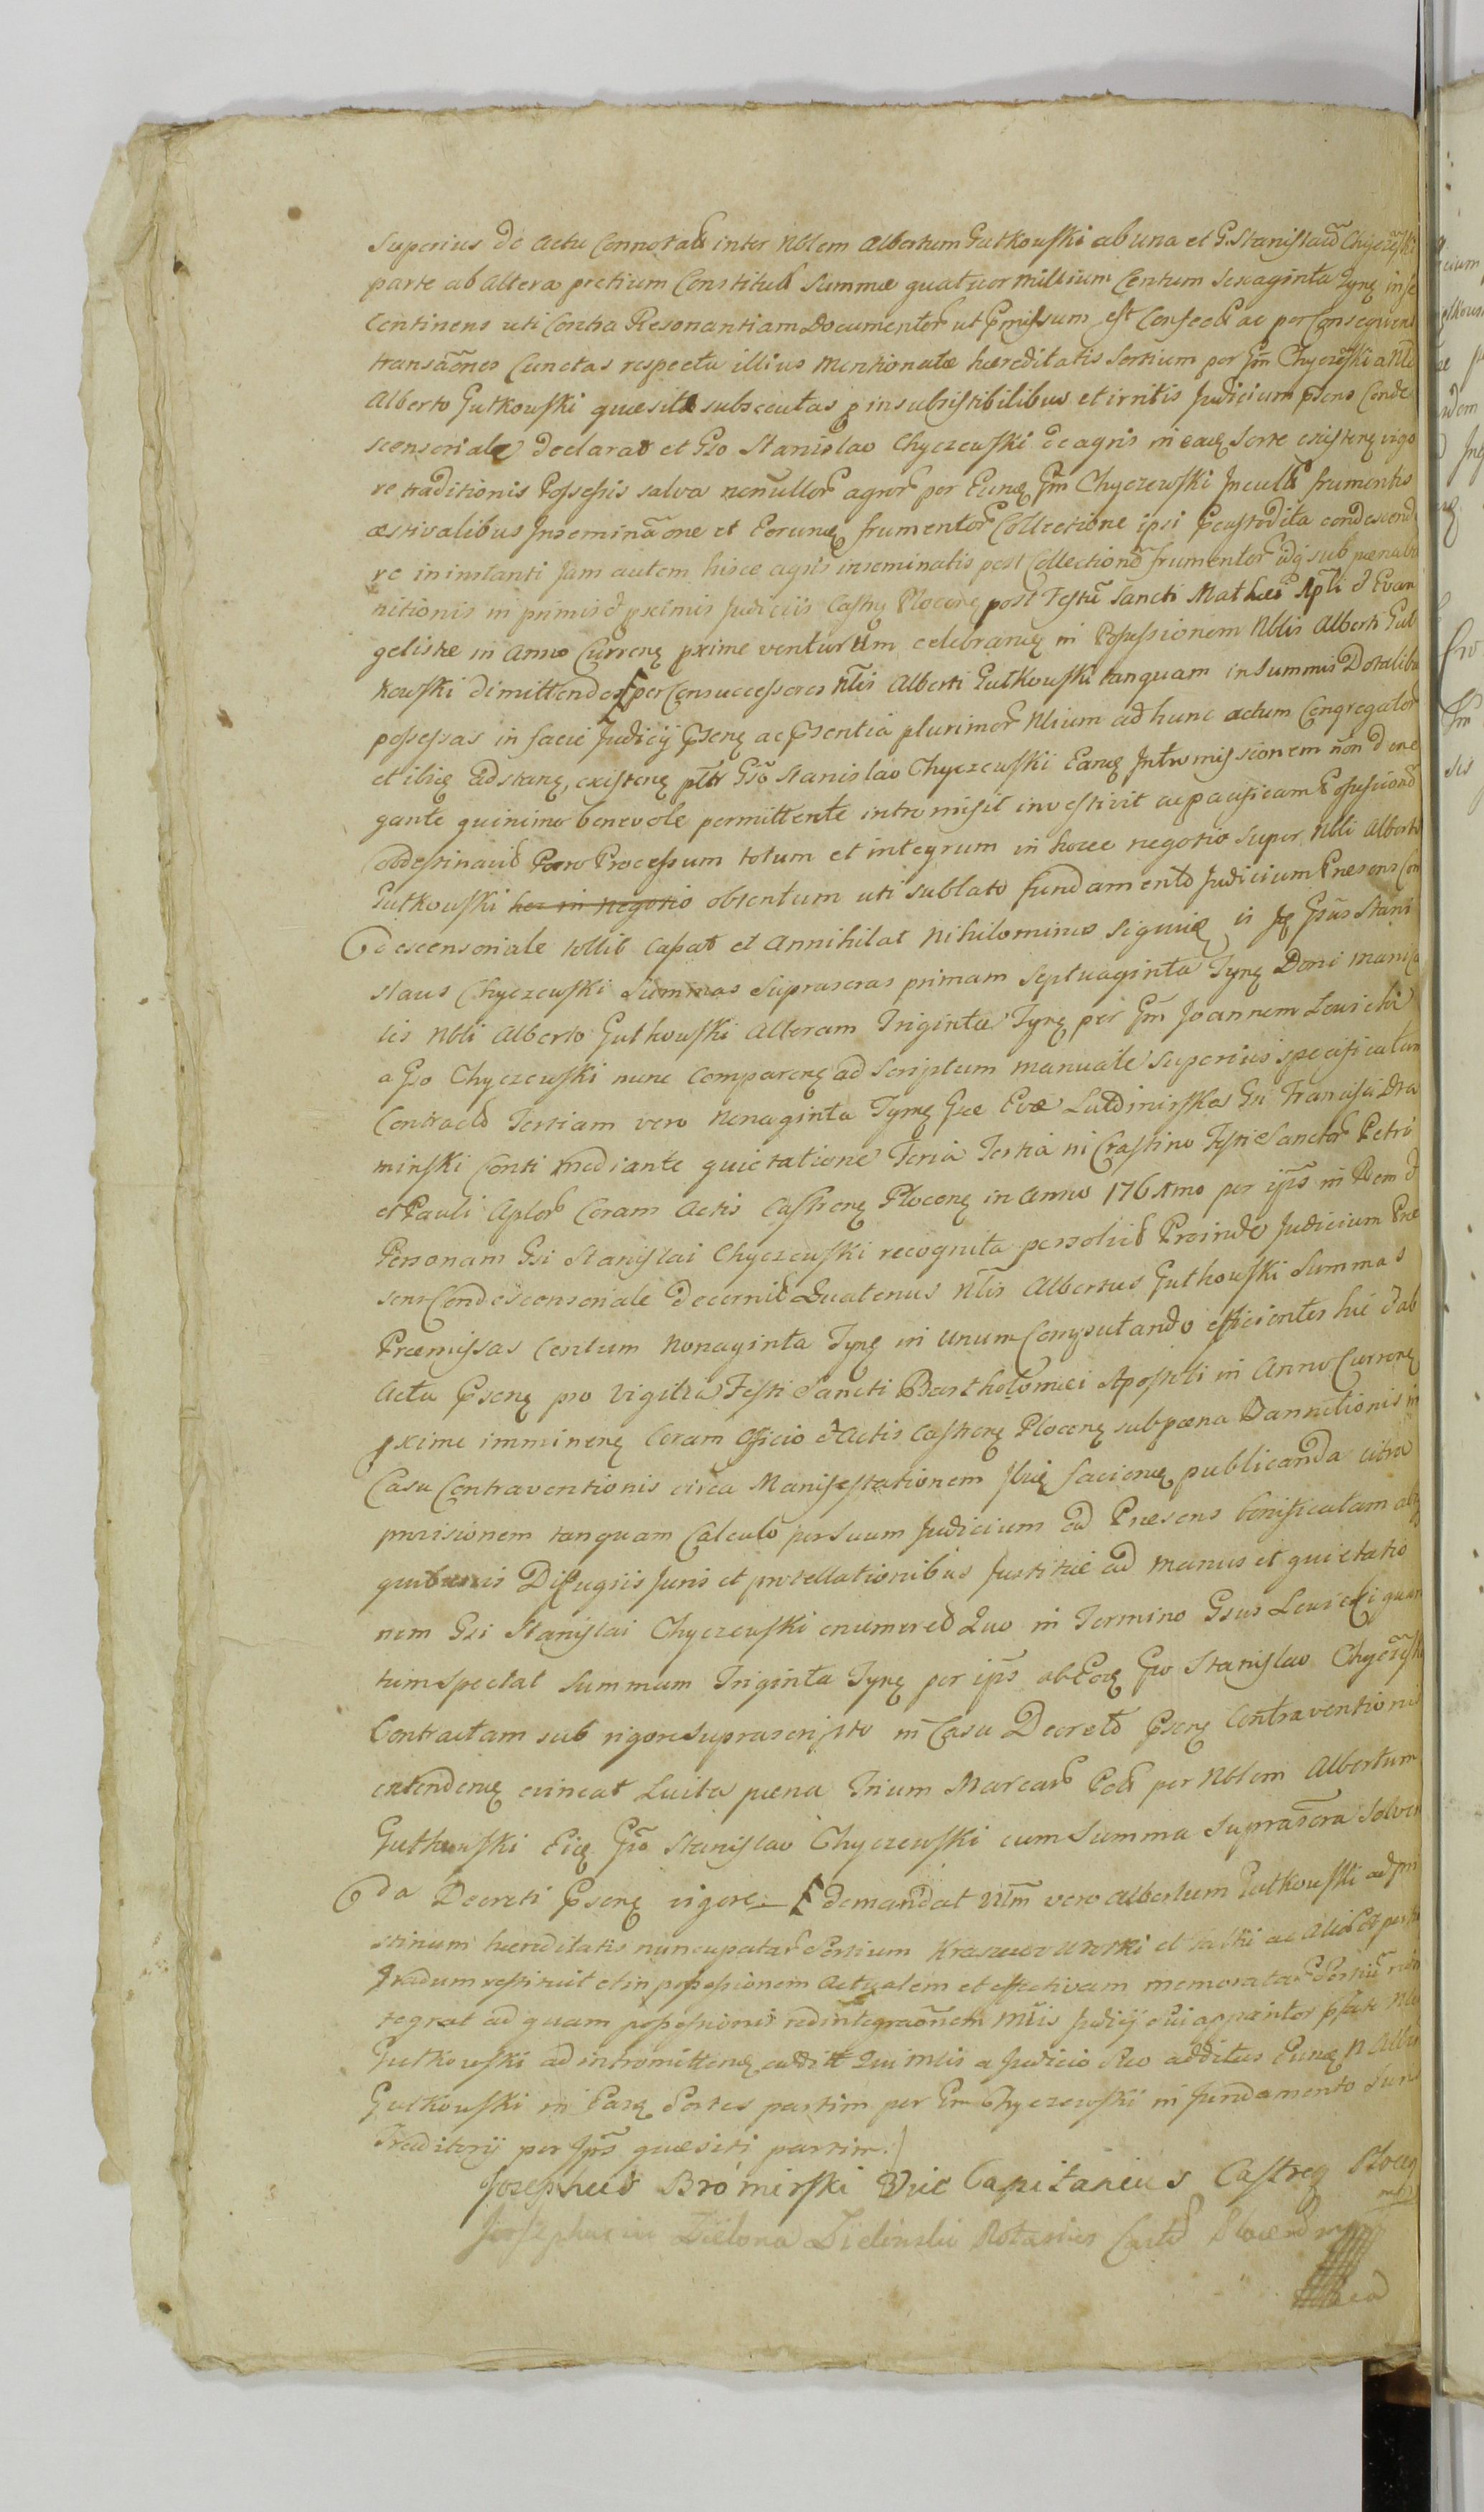 Superius de actu Connotat inter Nblem Albertum Gutkowski ab una et G. Stanislaum Chyczewski
parte ab altera pretium Constituti Summæ quatuor millium Centum Sexaginta Tynf in se
Continens uti Contra Resonantiam Documentor ut Pmissum est Confect ac per Consequens
transaones Cunctas respectu illius mentionatæ hæreditatis Sortium per Gm Chyczewski a Nbli
Alberto Gutkowski quæsit subsecutas p insubsistibilibus et irritis Judicium psens Conde
scensoriale declarat et Gso Stanislao Chyczewski de agris in eadem Sorte existen vigo
re traditionis Possessis salva nonullor agror per Eund Gm Chyczewski Incult frumentis
æstivalibus Inseminaone et Eorund frumentor Collectione ipsi Pcustodita condescende
re in instanti Jam autem hisce agris inseminatis post Collectione frumentor idq sub pæna ban
nitionis in primis et pximis Judiciis Castren Plocen post Festu Sancti Mathæi Apli et Evan
gelistæ in Anno Curren pxime venturum celebrand in Possessionem Nblis Alberti Gut
kowski dimittendas per Consuccessores Nblis Alberti Gutkowski tanquam in Summis Dotalibus
possessas in facie Judicij Psen ac Psentia plurimor Nblium ad hunc actum Congregator
et ibid adstan, existen ptt Gso Stanislao Chyczewski Eand Intromissionem non dene
gante quinimo benevole permittente intromisit investivit ac pacificam Possessione
Condestinavit Porro Processum totum et integrum in hocce negotio super Nbli Alberto
Gutkowski hoc in negotio obtentum uti sublato fundamento Judicium Præsens Con
descensoriale tollit Cassat et Annihilat Nihilominus siquid is Gsus Stani
slaus Chyczewski Summas Suprascras primam Septuaginta Tynf Doni manica
lis Nbli Alberto Gutkowski Alteram Triginta Tynf per Gm Joannem Lewicki
a Gso Chyczewski nunc Comparen ad Scriptum manuale Superius specificatum
Contract Tertiam vero Nonaginta Tynf Gæ Evæ Ludzinirska Gi Francisci Dra
minski Conti mediante quietatione Feria Tertia in Crastino Festi Sanctor Petri
et Pauli Aplor Coram Actis Castren Plocen in Anno 176 mo per ips in Rem et
Personam Gsi Stanislai Chyczewski recognita persolvit Proinde Judicium Præ
sens Condescensoriale decernit Quatenus Nblis Albertus Gutkowski Summas
Præmissas Centum Nonaginta Tynf in Unum Computando efficientes hic ab
Actu Psen pro Vigilia Festi Sancti Bartholomæi Apostoli in Anno Curren
pxime imminen Coram Officio et Actis Castren Plocen sub pæna Bannitionis in
Casu Contraventionis circa Manifestationem faciend publicanda citra
provisionem tanquam Calculo per suum Judicium ad Præsens bonificatam absq
quibusvis Diffugiis Juris et protellationibus Justitiæ ad manus et quietatio
nem Gsi Stanislai Chyczewski enumeret Quo in Termino Gsus Lewicki quan
tum spectat Summam Triginta Tynf per ips ab Eod Gso Stanislao Chyczewski
Contractam sub rigore suprascripto in Casu Decreto Psen Contraventionis
extendend evincat Luita pæna Trium Marcar Pol per Nblem Albertum
Gutkowski Eid Gso Stanislao Chyczewski cum Summa Suprascra Solven
da Decreti Psen vigore demandat Nblm vero Albertum Gutkowski ad pri
stinum hæreditatis nuncupatar Sortium et ac alio
Gradum restituit et in possessionem actualem et effectivam memoratar Sortium rein
tegrat ad quam possessionis redintegraonem Mlis Judicij Sui apparitor Nbli
Gutkowski ad intromitten addit Qui Mlis a Judicio Suo additus Eund N Albert
Gutkowski in Easd Sortes partim per Gm Chyczewski in fundamento Juris
Traditorij per Ips quæsiti partim.
Josephus Bromirski Vice Capitaneus Castren Plocen
mp
Josephus in Zielona Zielinski Notarius Castr Plocen mp